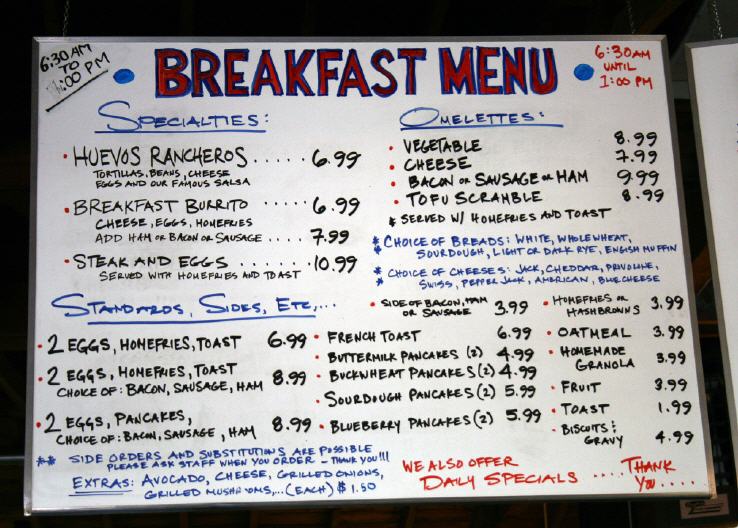 6:30AM
TO
1:00 PM
BREAKFAST MENU
6:30AM
UNTIL
1:00 PM
SPECIALTIES:
• HUEVOS RANCHEROS ..... 6.99
TORTILLAS, BEANS, CHEESE
EGGS AND OUR FAMOUS SALSA
• BREAKFAST BURRITO ..... 6.99
CHEESE, EGGS, HOMEFRIES
ADD HAM OR BACON OR SAUSAGE .... 7.99
• STEAK AND EGGS ...... 10.99
SERVED WITH HOMEFRIES AND TOAST
OMELETTES:
• VEGETABLE 8.99
• CHEESE 7.99
• BACON OR SAUSAGE OR HAM 9.99
• TOFU SCRAMBLE 8.99
* SERVED W/ HOMEFRIES AND TOAST
* CHOICE OF BREADS: WHITE, WHOLEWHEAT,
SOURDOUGH, LIGHT OR DARK RYE, ENGISH MUFFIN
* CHOICE OF CHEESES: JACK, CHEDDAR, PROVOLINE,
SWISS, PEPPER JACK, AMERICAN, BLUE CHEESE
STANDARDS, SIDES, ETC,...
• 2 EGGS, HOMEFRIES, TOAST 6.99
• 2 EGGS, HOMEFRIES, TOAST
CHOICE OF: BACON, SAUSAGE, HAM 8.99
• 2 EGGS, PANCAKES,
CHOICE OF: BACON, SAUSAGE, HAM 8.99
• SIDE OF BACON, HAM
OR SAUSAGE 3.99
• FRENCH TOAST 6.99
• BUTTERMILK PANCAKES (2) 4.99
• BUCKWHEAT PANCAKES (2) 4.99
• SOURDOUGH PANCAKES (2) 5.99
• BLUEBERRY PANCAKES (2) 5.99
• HOMEFRIES OR
HASHBROWNS 3.99
• OATMEAL 3.99
• HOMEMADE
GRANOLA 3.99
• FRUIT 3.99
• TOAST 1.99
• BISCUITS &
GRAVY 4.99
** SIDE ORDERS AND SUBSTITUTIONS ARE POSSIBLE
PLEASE ASK STAFF WHEN YOU ORDER - THANK YOU!!!
EXTRAS: AVOCADO, CHEESE, GRILLED ONIONS,
GRILLED MUSHROOMS,...(EACH) $1.50
WE ALSO OFFER
DAILY SPECIALS .....
THANK
YOU .....